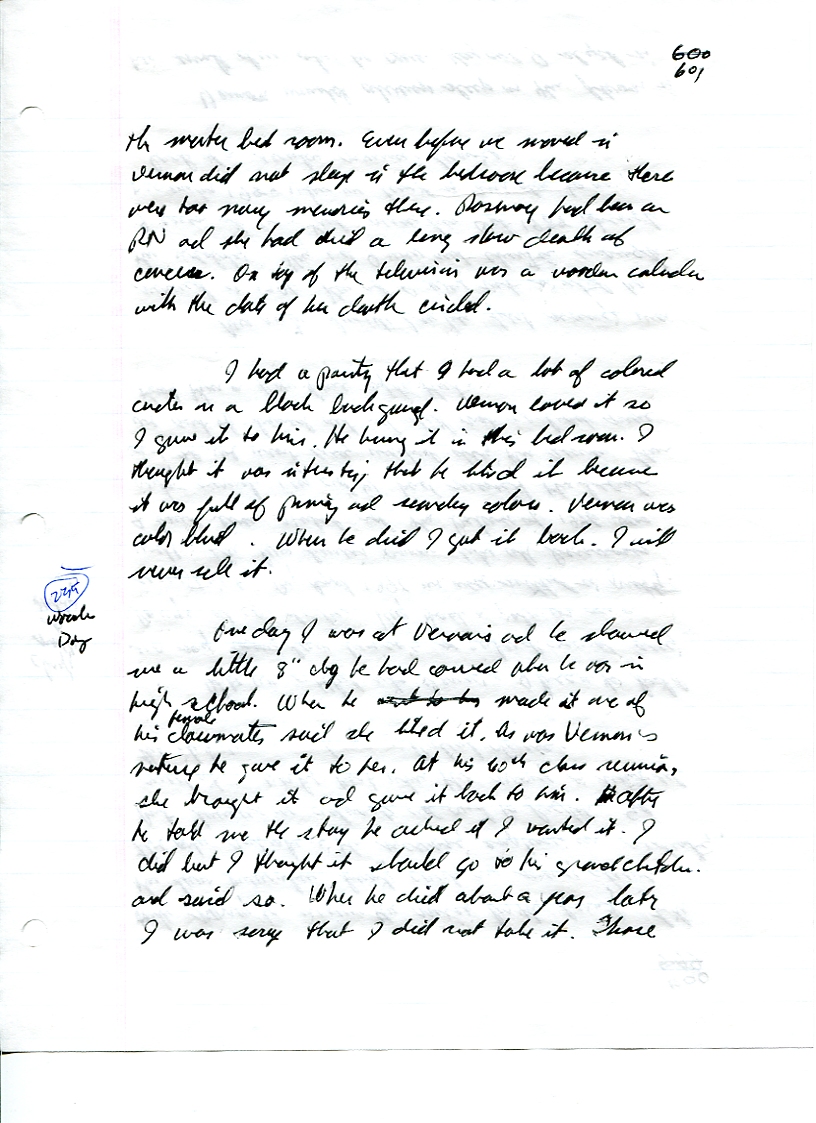 600
601
the master bed room. Even before we moved in
Vernon did not sleep in the bedroom because there
were too many memories there. Rosemary had been an
RN and she had died a long slow death of
cancer. On top of the television was a wooden calendar
with the date of her death circled.
I had a painting that I had a lot of colored
circles on a black background. Vernon loved it so
I gave it to him. He hung it in his bedroom. I
thought it was interesting that he liked it because
it was full of primary and secondary colors. Vernon was
color blind. When he died I got it back. I will
never sell it.
Dog
One day I was at Vernon's and he showed
me a little 8" dog he had carved when he was in
high school. When he made it one of
his female classmates said she liked it. As was Vernon's
nature he gave it to her. At his 60th class reunion,
she brought it and gave it back to him. After
he told me the story he asked if I wanted it. I
did but I thought it should go to his grandchildren.
and said so. When he died about a year later
I was sorry that I did not take it. Those